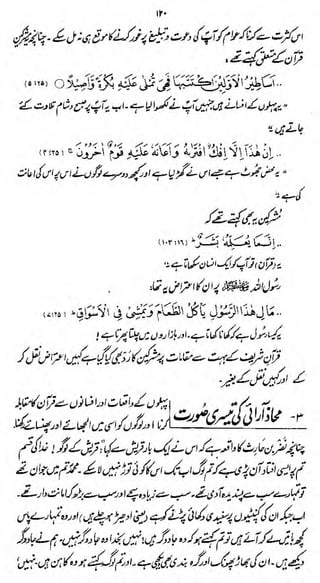 ۱۲۰
اس کثرت سے کہنا کہ عوام کو آپؐ کی دعوت و تبلیغ پر غور کرنے کا موقع ہی نہ مل سکے۔ چنانچہ یہ مشرکین
قرآن کے متعلق کہتے تھے:
.. اَسَاطِيْرُ الْاَوَّلِيْنَ اكْتَتَبَهَا فَهِيَ تُمْلٰى عَلَيْهِ بُكْرَةً وَّاَصِيْلًا ○ (۵:۲۵)
"یہ پہلوں کے افسانے ہیں جنہیں آپؐ نے لکھوا لیا ہے۔ اب یہ آپؐ پر صبح و شام تلاوت کئے
جاتے ہیں"
.. اِنْ هٰذَا اِلَّا اِفْكُ افْتَرٰىهُ وَاَعَانَهٗ عَلَيْهِ قَوْمٌ اٰخَرُوْنَ (۴:۲۵)
"یہ محض جھوٹ ہے جسے اس نے گھڑ لیا ہے اور کچھ دوسرے لوگوں نے اس پر اس کی اعانت
کی ہے"
مشرکین یہ بھی کہتے تھے کہ
.. اِنَّمَا يُعَلِّمُهٗ بَشَرٌ (۱۰۳:۱۶)
یہ (قرآن) تو آپؐ کو ایک انسان سکھاتا ہے"
رسول اللہ ﷺ پر ان کا اعتراض یہ تھا:
.. مَالِ هٰذَا الرَّسُوْلِ يَأْكُلُ الطَّعَامَ وَيَمْشِيْ فِي الْاَسْوَاقِ (۷:۲۵)
یہ کیسا رسول ہے کہ کھانا کھاتا ہے۔ اور بازاروں میں چلتا پھرتا ہے!
قرآن شریف کے بہت سے مقامات پر مشرکین کا رد بھی کیا گیا ہے کہیں اعتراض نقل کر
کے اور کہیں نقل کے بغیر۔
۳۔ محاذ آرائی کی تیسری صورت
پہلوں کے واقعات اور افسانوں سے قرآن کا مقابلہ
کرنا اور لوگوں کو اسی میں الجھائے اور پھنسائے رکھنا
چنانچہ نضر بن حارث کا واقعہ ہے کہ اس نے ایک بار قریش سے کہا "قریش کے لوگو! خدا کی قسم
تم پر ایسی افتاد آن پڑی ہے کہ تم لوگ اب تک اس کا کوئی توڑ نہیں لا سکے۔ محمدؐ تم میں جوان تھے
تو تمہارے سب سے پسندیدہ آدمی تھے۔ سب سے زیادہ سچے اور سب سے بڑھ کر امانت دار تھے۔
اب جبکہ ان کی کنپٹیوں پر سفیدی دکھائی پڑنے کو ہے (یعنی ادھیڑ ہو چلے ہیں) اور وہ تمہارے پاس
کچھ باتیں لے کر آئے ہیں تو تم کہتے ہو کہ وہ جادوگر ہیں! نہیں، بخدا وہ جادوگر نہیں۔ ہم نے جادوگر
دیکھے ہیں۔ ان کی جھاڑ پھونک اور گرہ بندی بھی دیکھی ہے۔ اور تم لوگ کہتے ہو وہ کاہن ہیں۔ نہیں،